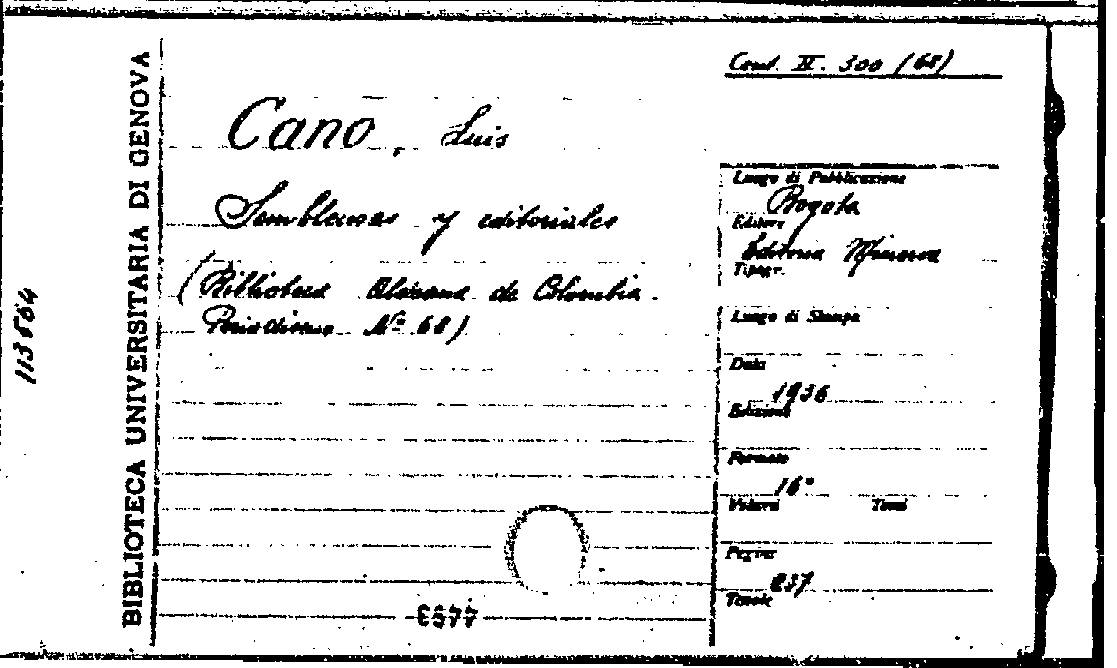 Cons. II. 300 (68)
BIBLIOTECA UNIVERSITARIA DI GENOVA
113564
Cano, Luis
Semblanzas y editoriales
(Biblioteca Aldeana de Colombia.
Periodismo Nº 68)
Luogo di Pubblicazione
Bogota
Editore
Editorial Minerva
Tipogr.
Luogo di Stampa
Data
1936
Edizione
Formato
16°
Volumi Tomi
Pagine
237
Tavole